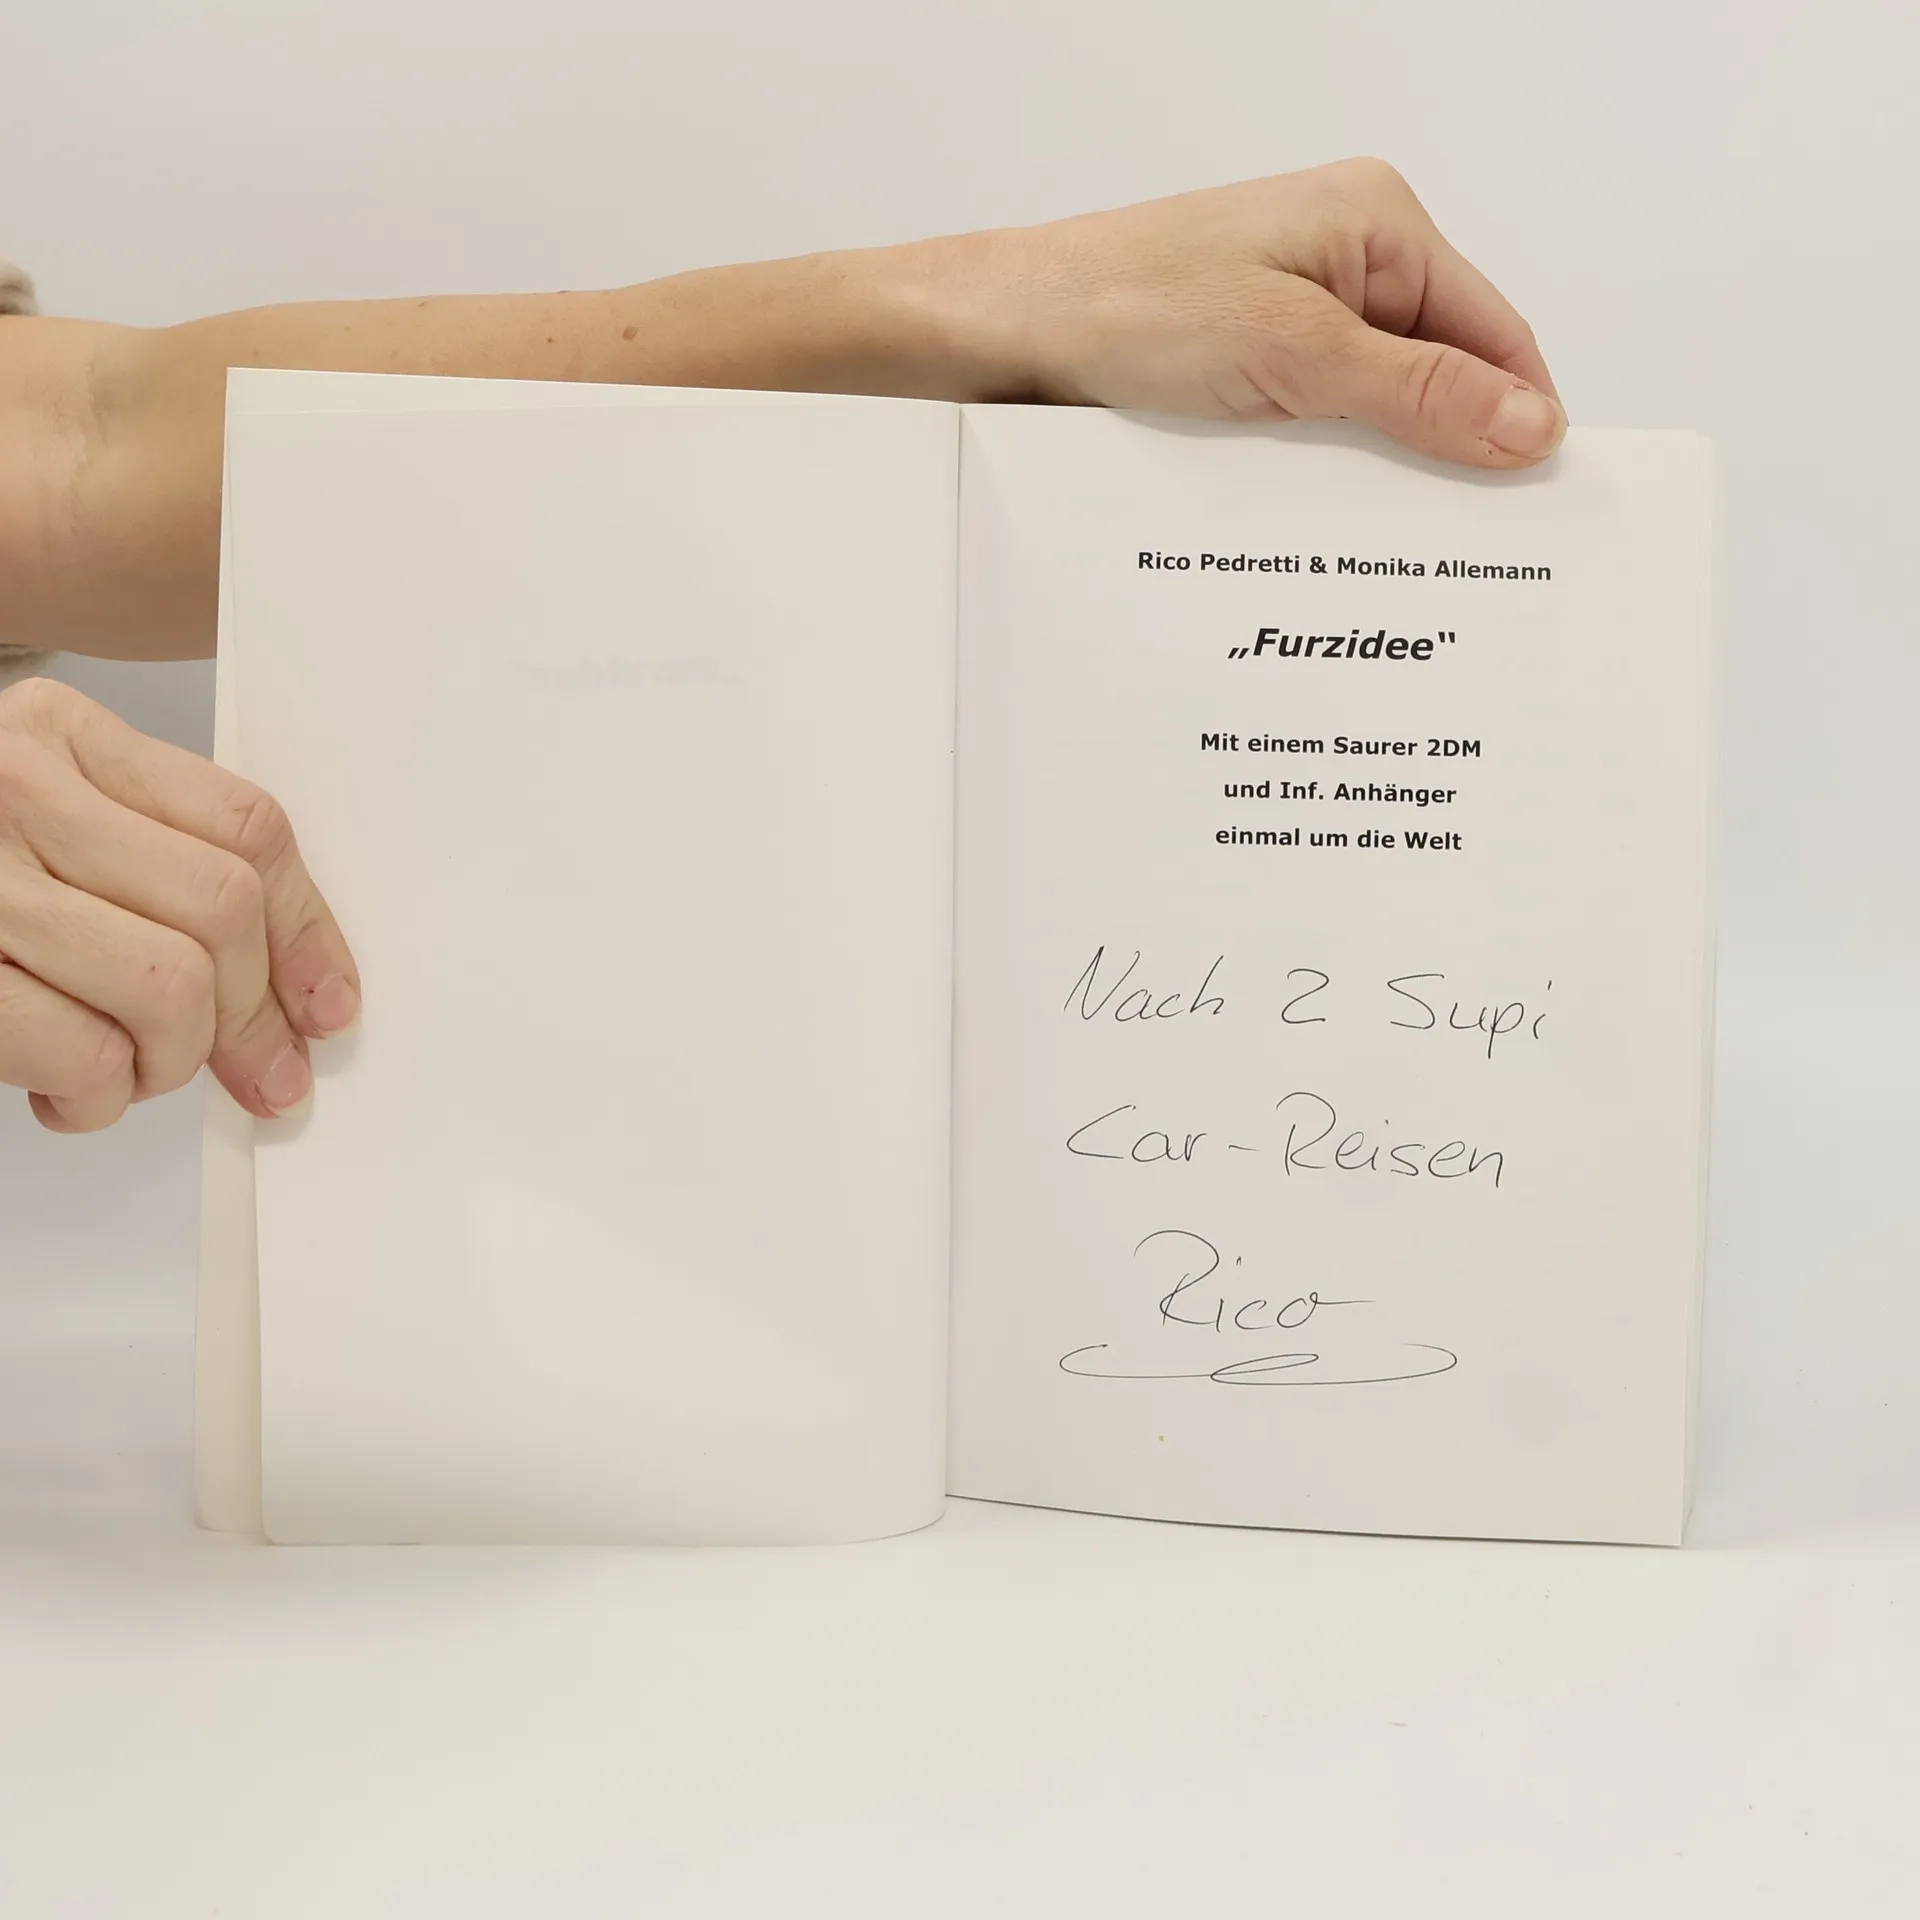 Rico Pedretti & Monika Allemann
„Furzidee“
Mit einem Saurer 2DM
und Inf. Anhänger
einmal um die Welt
Nach 2 Supi
Car-Reisen
Rico